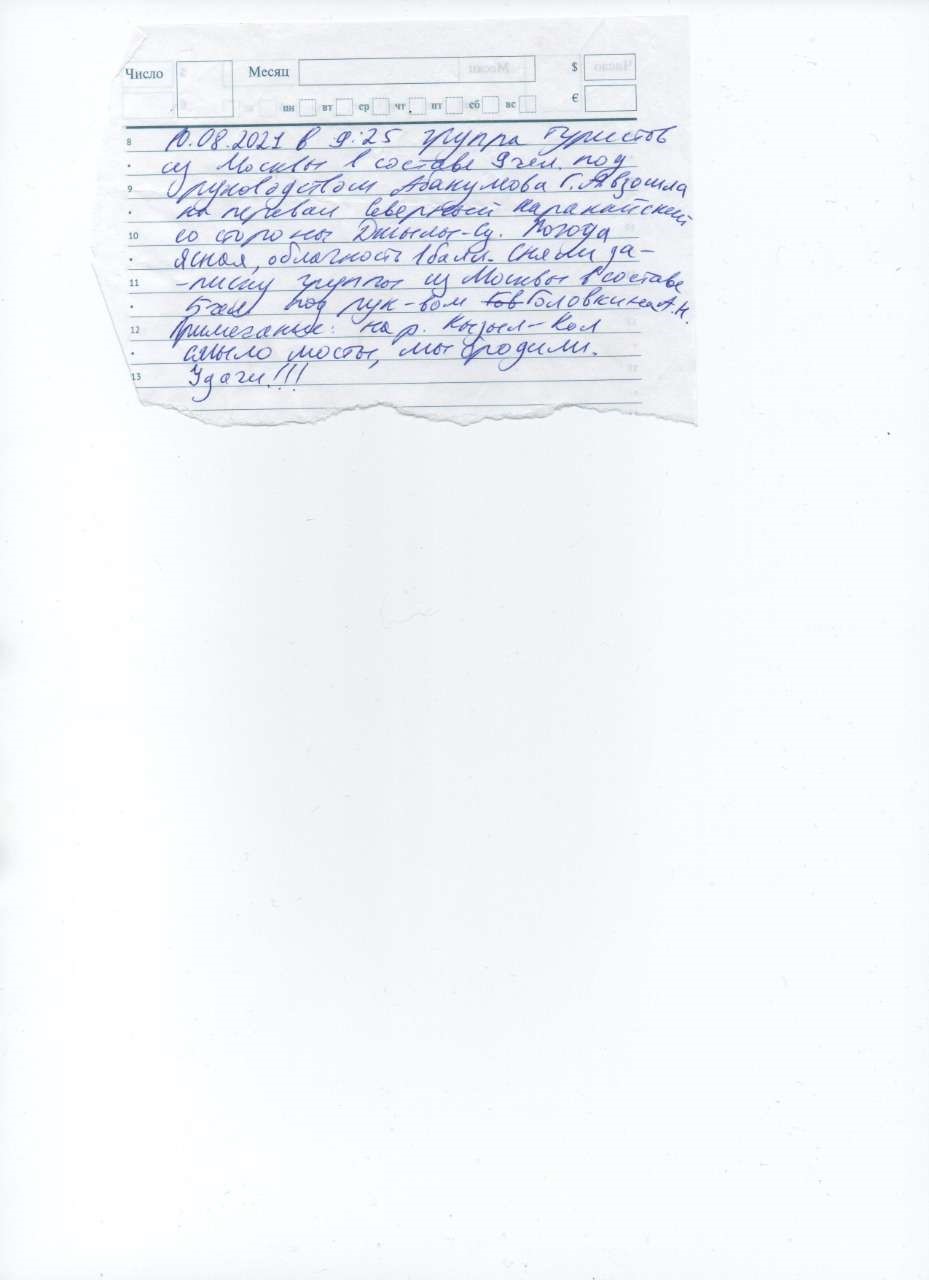 Число Месяц $
пн вт ср чт пт сб вс €
8 10.08.2021 в 9:25 группа туристов
из Москвы в составе 9 чел. под
9 руководством Абакумова Г. взошла
на перевал Северный Каракайский
10 со стороны Джылы-Су. Погода
ясная, облачность 1 балл. Сняли за-
11 -писку группы из Москвы в составе
5 чел под рук-вом Головкина А.Н.
12 Примечание: на р. Кызыл-Кол
смыло мосты, мы бродили.
13 Удачи!!!